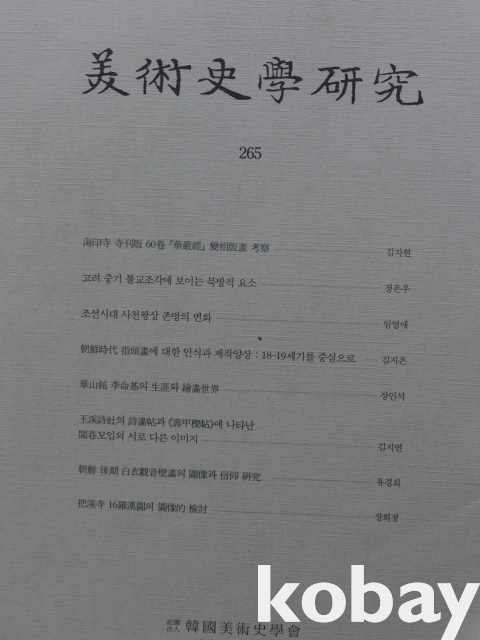 美術史學研究
265
海印寺 寺刊版 60卷『華嚴經』變相版畫 考察 김자현
고려 중기 불교조각에 보이는 북방적 요소 정은우
조선시대 사천왕상 존명의 변화 임영애
朝鮮時代 指頭畵에 대한 인식과 제작양상 : 18-19세기를 중심으로 김지은
華山館 李命基의 生涯와 繪畵世界 장인석
玉溪詩社의 詩畵帖과 《壽甲稧帖》에 나타난
閭巷모임의 서로 다른 이미지 김지연
朝鮮 後期 白衣觀音壁畵의 圖像과 信仰 硏究 유경희
把溪寺 16羅漢圖의 圖像的 檢討 장희정
社團法人 韓國美術史學會
kobay